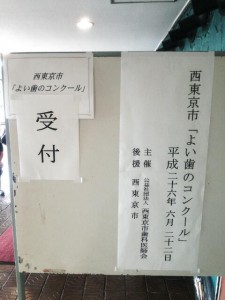 西東京市
「よい歯のコンクール」
受付
西東京市「よい歯のコンクール」
平成二十六年 六月 二十二日
主催 公益社団法人 西東京市歯科医師会
後援 西東京市